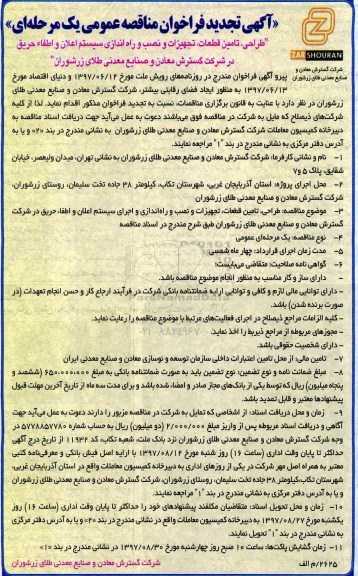 «آگهی تجدید فراخوان مناقصه عمومی یک مرحله‌ای»
"طراحی، تامین قطعات، تجهیزات و نصب و راه اندازی سیستم اعلان و اطفاء حریق
در شرکت گسترش معادن و صنایع معدنی طلای زرشوران"
ZAR SHOURAN
شرکت گسترش معادن و
صنایع معدنی طلای زرشوران
پیرو آگهی فراخوان مندرج در روزنامه‌های رویش ملت مورخ ۱۳۹۷/۰۶/۱۲ و دنیای اقتصاد مورخ
۱۳۹۷/۰۶/۱۳ به منظور ایجاد فضای رقابتی بیشتر، شرکت گسترش معادن و صنایع معدنی طلای
زرشوران در نظر دارد با عنایت به قانون برگزاری مناقصات، نسبت به تجدید فراخوان مذکور اقدام نماید. لذا از کلیه
شرکت‌های ذیصلاح که مایل به شرکت در مناقصه فوق می‌باشند دعوت به عمل می‌آید جهت دریافت اسناد مناقصه به
دبیرخانه کمیسیون معاملات شرکت گسترش معادن و صنایع معدنی طلای زرشوران به نشانی مندرج در بند «۲» و یا به
آدرس دفتر مرکزی به نشانی مندرج در بند "۱" مراجعه نمایند.
۱- نام و نشانی کارفرما: شرکت گسترش معادن و صنایع معدنی طلای زرشوران به نشانی تهران، میدان ولیعصر، خیابان
شقایق، پلاک ۵ و ۷
۲- محل اجرای پروژه: استان آذربایجان غربی، شهرستان تکاب، کیلومتر ۳۸ جاده تخت سلیمان، روستای زرشوران،
شرکت گسترش معادن و صنایع معدنی طلای زرشوران
۳- موضوع مناقصه: طراحی، تامین قطعات، تجهیزات و نصب و راه‌اندازی و اجرای سیستم اعلان و اطفاء حریق در شرکت
گسترش معادن و صنایع معدنی طلای زرشوران طبق شرح مندرج در اسناد مناقصه
۴- نوع مناقصه: یک مرحله‌ای عمومی
۵- مدت زمان اجرای قرارداد: چهار ماه شمسی
۶- گواهی نامه صلاحیت: متقاضی می‌بایست:
- دارای ساز و کار مناسب به منظور انجام موضوع مناقصه باشد.
- دارای توانایی مالی لازم و کافی و توانایی ارایه ضمانتنامه بانکی شرکت در فرآیند ارجاع کار و حسن انجام تعهدات (در
صورت برنده شدن) باشد.
- کلیه الزامات مراجع ذیصلاح در اجرای فعالیت‌های مرتبط با موضوع مناقصه را رعایت نماید.
- مجوزهای مربوطه از مراجع ذیربط را اخذ نماید.
- دارای شخصیت حقوقی باشد.
۷- تامین مالی: از محل تامین اعتبارات داخلی سازمان توسعه و نوسازی معادن و صنایع معدنی ایران
۸- مبلغ ضمانت نامه و نوع تضمین: نوع تضمین باید به صورت ضمانتنامه بانکی به مبلغ ۶۵۰،۰۰۰،۰۰۰ (ششصد و
پنجاه میلیون) ریال که توسط یکی از بانک‌های مجاز صادر و امضاء شده باشد و برای مدت سه ماه از تاریخ آخرین مهلت قبول
پیشنهادها معتبر و قابل تمدید باشد.
۹- زمان و محل دریافت اسناد: از اشخاصی که تمایل به شرکت در مناقصه مزبور را دارند دعوت به عمل می‌آید جهت
آگاهی و دریافت اسناد مربوطه پس از واریز مبلغ ۲/۰۰۰/۰۰۰ (دو میلیون) ریال به حساب شماره ۵۷۷۸۸۵۷۷۸۰ در
وجه شرکت گسترش معادن و صنایع معدنی طلای زرشوران نزد بانک ملت، شعبه تکاب، کد ۱۱۹۳۲ از تاریخ درج آگهی
حداکثر تا پایان وقت اداری (ساعت ۱۶) روز شنبه مورخ ۱۳۹۷/۰۸/۱۲ با ارایه اصل فیش بانکی و معرفی‌نامه کتبی
معتبر به همراه اصل مهر شرکت در یکی از روزهای اداری به دبیرخانه کمیسیون معاملات واقع در استان آذربایجان غربی،
شهرستان تکاب، کیلومتر ۳۸ جاده تخت سلیمان، روستای زرشوران، شرکت گسترش معادن و صنایع معدنی طلای زرشوران
و یا به آدرس دفتر مرکزی به نشانی مندرج در بند "۱" مراجعه نمایند.
۱۰- زمان و محل تحویل اسناد: متقاضیان مکلفند پیشنهادهای خود را حداکثر تا پایان وقت اداری (ساعت ۱۶) روز
یکشنبه مورخ ۱۳۹۷/۰۸/۲۷ به دبیرخانه کمیسیون معاملات واقع در نشانی مندرج در بند «۲» و یا به آدرس دفتر مرکزی
به نشانی مندرج در بند "۱" تحویل نمایند.
۱۱- زمان گشایش پاکت‌ها: ساعت ۱۰ صبح روز چهارشنبه مورخ ۱۳۹۷/۰۸/۳۰ در نشانی مندرج در بند «۱»
۲۶۲۵/م الف
شرکت گسترش معادن و صنایع معدنی طلای زرشوران